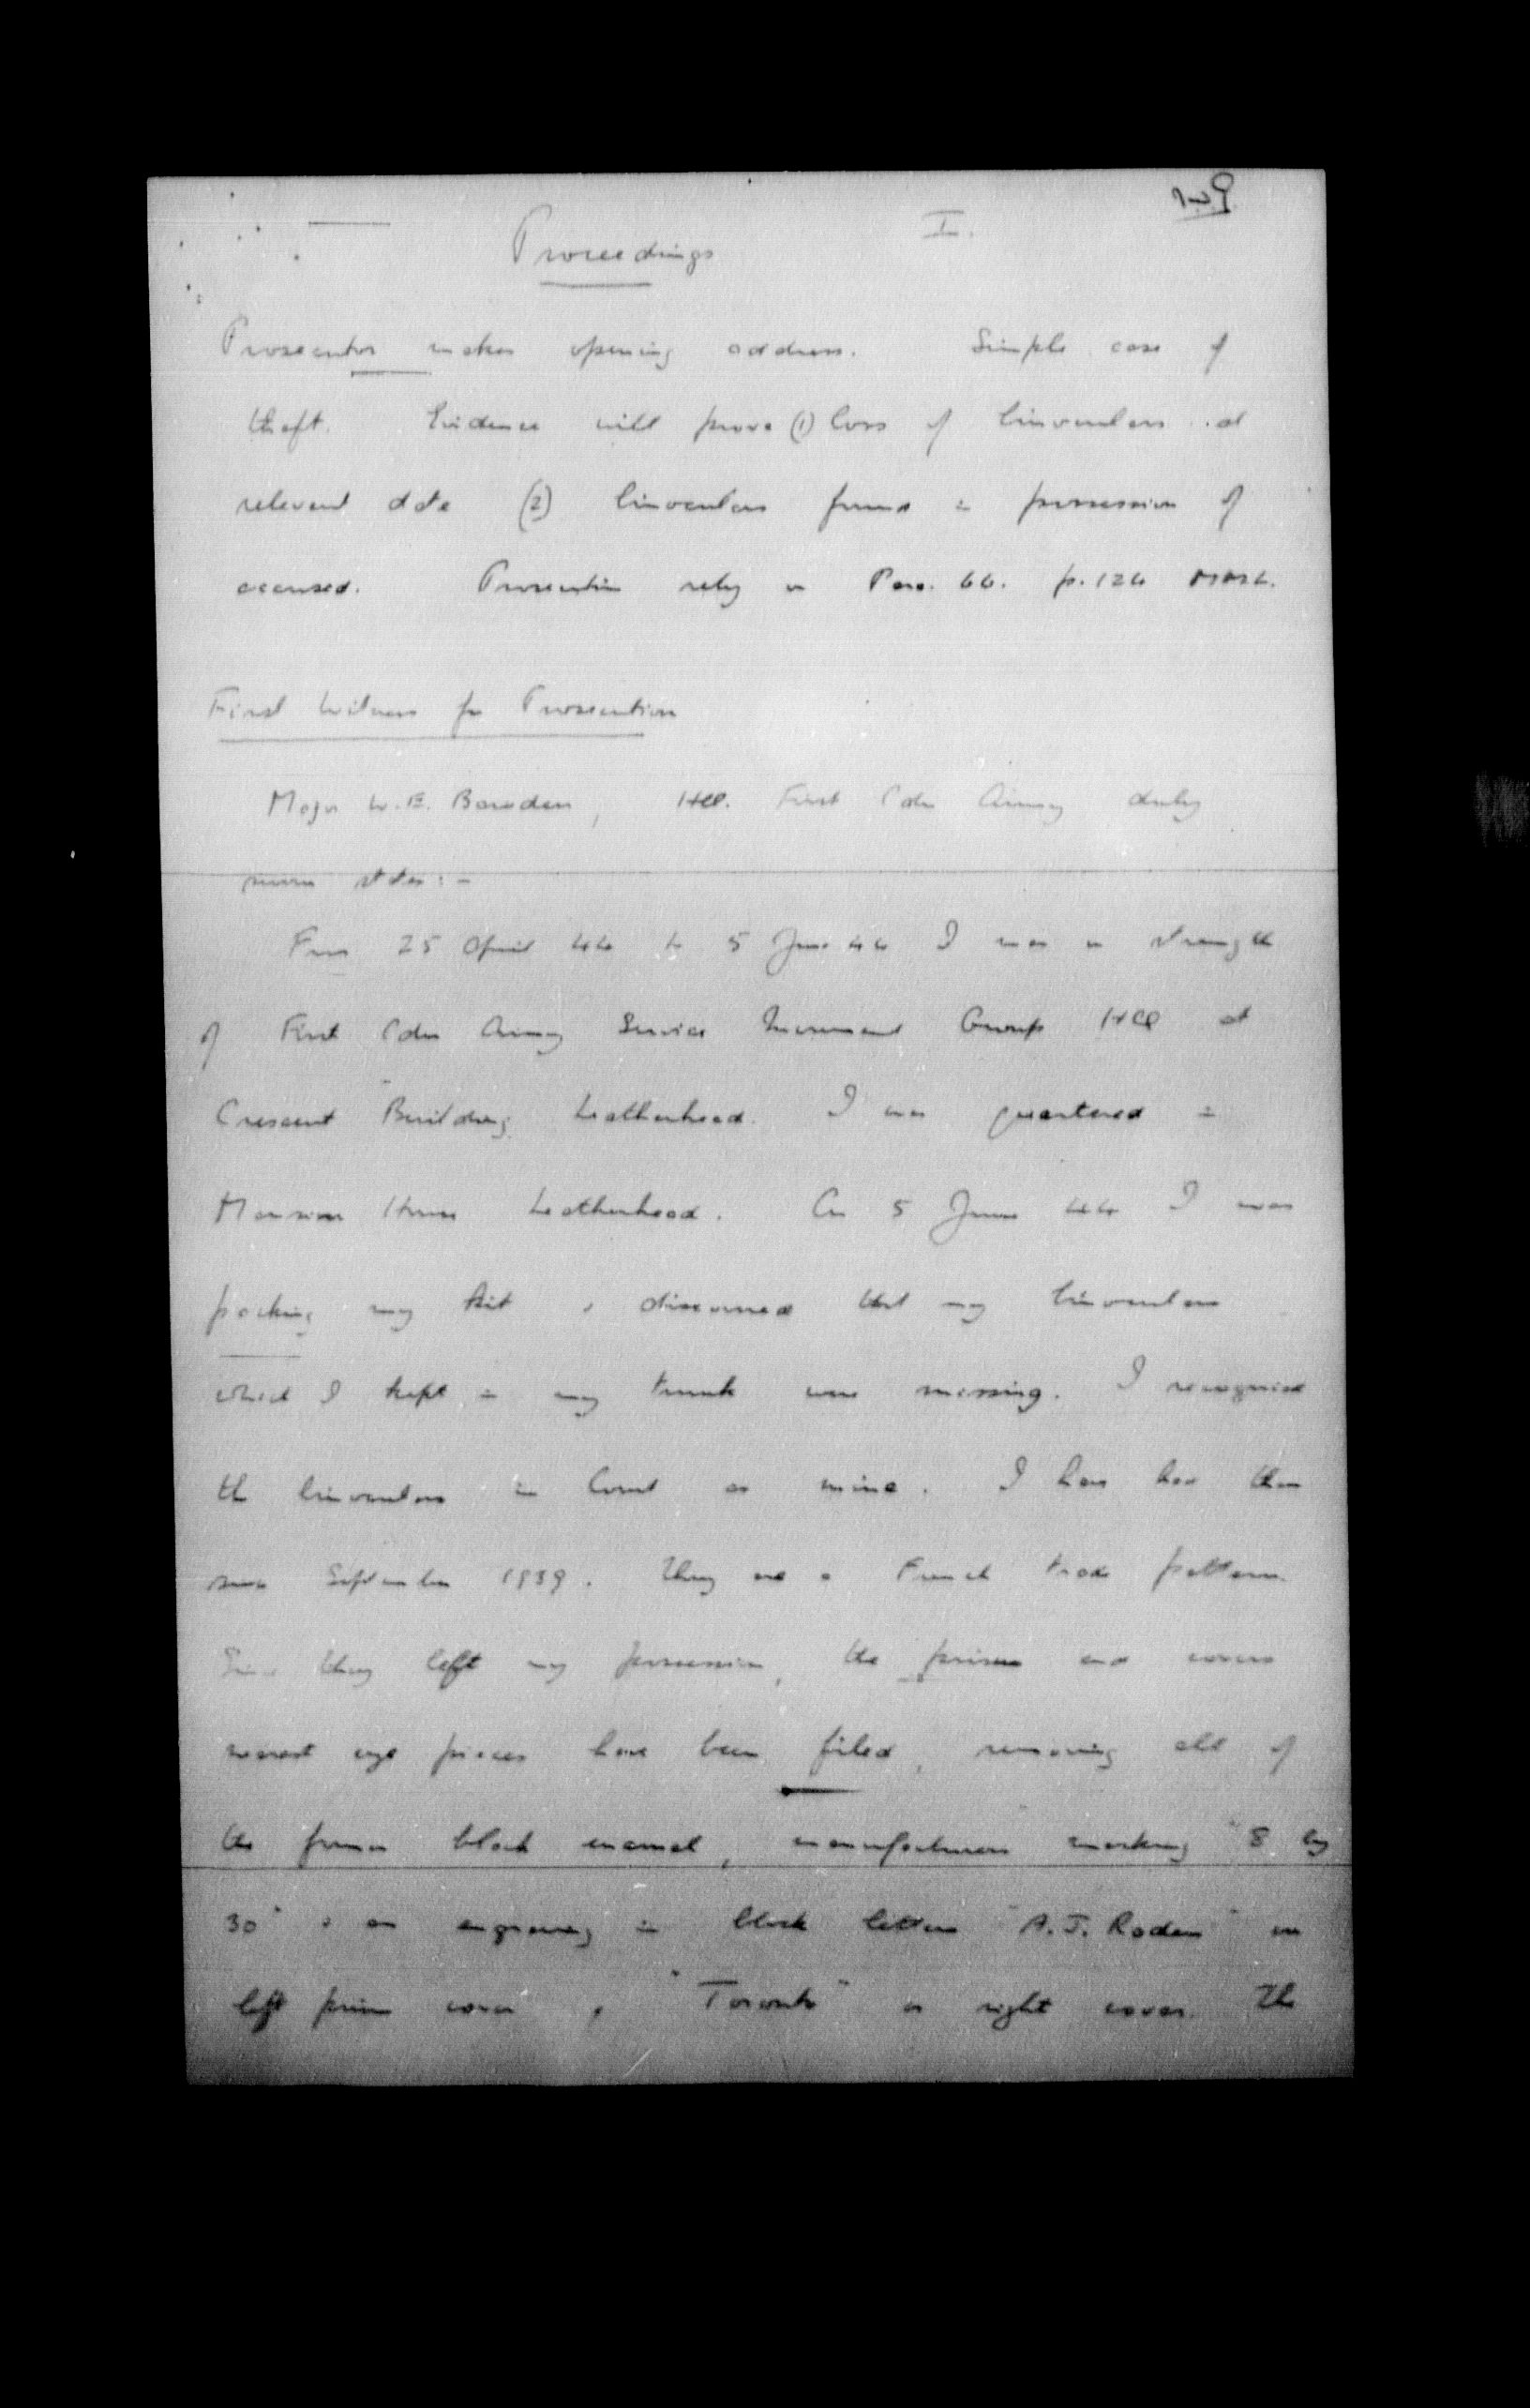 I.
Proceedings
Prosecutor makes opening address. Simple case of
theft. Evidence will prove (1) loss of binoculars at
relevant date (2) binoculars found in possession of
accused. Prosecution rely on Para. 44. p. 124 MML.
First Witness for Prosecution
Major W.E. HQ. First Cdn Army duly
sworn states:-
From 25 April 44 to 5 June 44 I was on strength
of First Cdn Army Service Increment Group HQ at
Crescent Building Leatherhead. I was quartered in
Mansion House Leatherhead. On 5 June 44 I was
packing my kit & discovered that my binoculars
which I kept in my trunk were missing. I recognise
the binoculars in Court as mine. I have had them
since September 1939. They are a French trade pattern.
Since they left my possession, the prism end covers
nearest eye pieces have been filed, removing all of
the former black enamel, manufacturers marking "8 by
30" & an engraving in block letters "A.J. Roden" on
left prism cover & "Toronto" on right cover. The